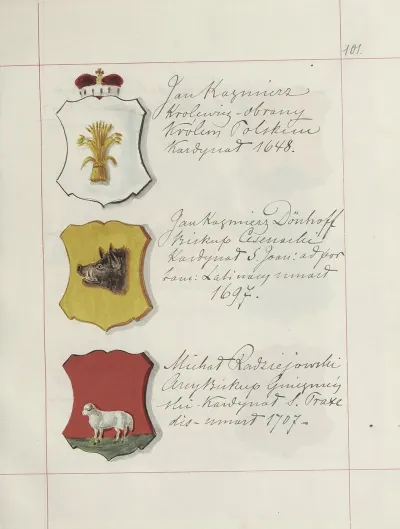 101.
Jan Kazmierz
Królewicz - obrany
Królem Polskim
Kardynał 1648.
Jan Kazmierz Dönhoff
Biskup Cesenacki
Kardynał S. Joan: ad por
tam: Latinam, umarł
1697.
Michał Radziejowski
Arcy Biskup Gnieznień
ski - Kardynał S. Praxe
dis - umarł 1707.-